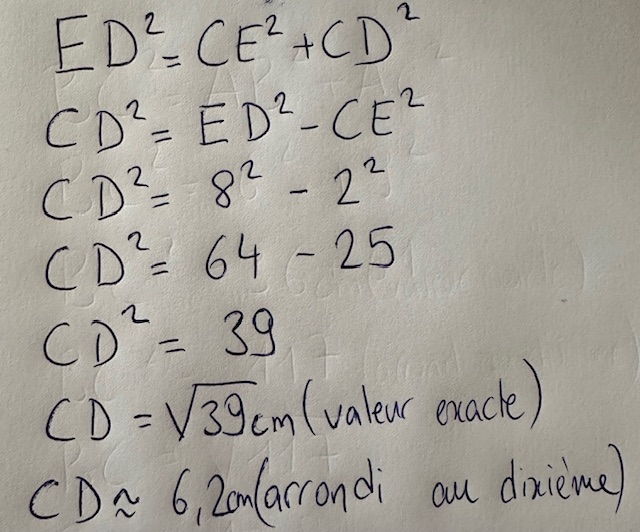 ED² = CE² + CD²
CD² = ED² - CE²
CD² = 8² - 2²
CD² = 64 - 25
CD² = 39
CD = √39 cm (valeur exacte)
CD ≈ 6,2cm (arrondi au dixième)